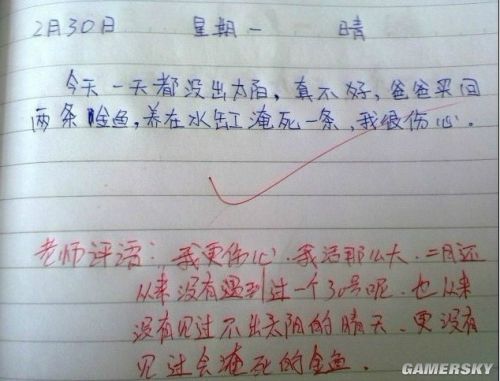 2月30日 星期一 晴
今天一天都没出太阳，真不好，爸爸买回
两条金鱼，养在水缸淹死一条，我很伤心.
老师评语：我更伤心.我活那么大.二月还
从来没有遇到过一个30号呢.也从来
没有见过不出太阳的晴天.更没有
见过会淹死的金鱼.
GAMERSKY